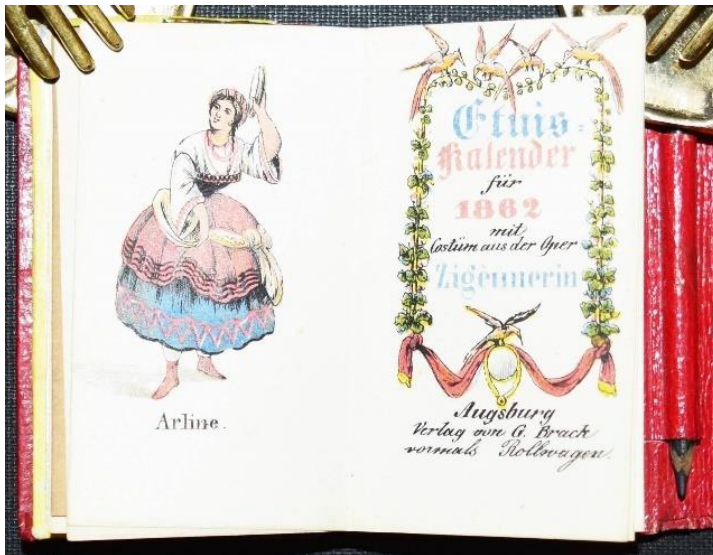 Arline.
Etuis-
Kalender
für
1862
mit
Costüm aus der Oper
Zigeunerin
Augsburg
Verlag von G. Brack
vormals Rollwagen.